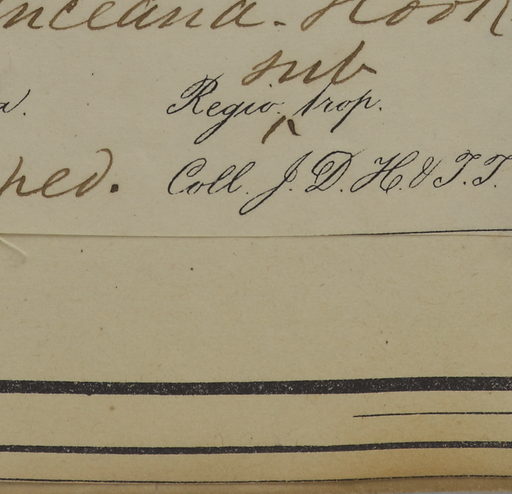 nceana. Hook
sub
a. Regio ^ trop.
ped. Coll. J. D. H. & T. T.